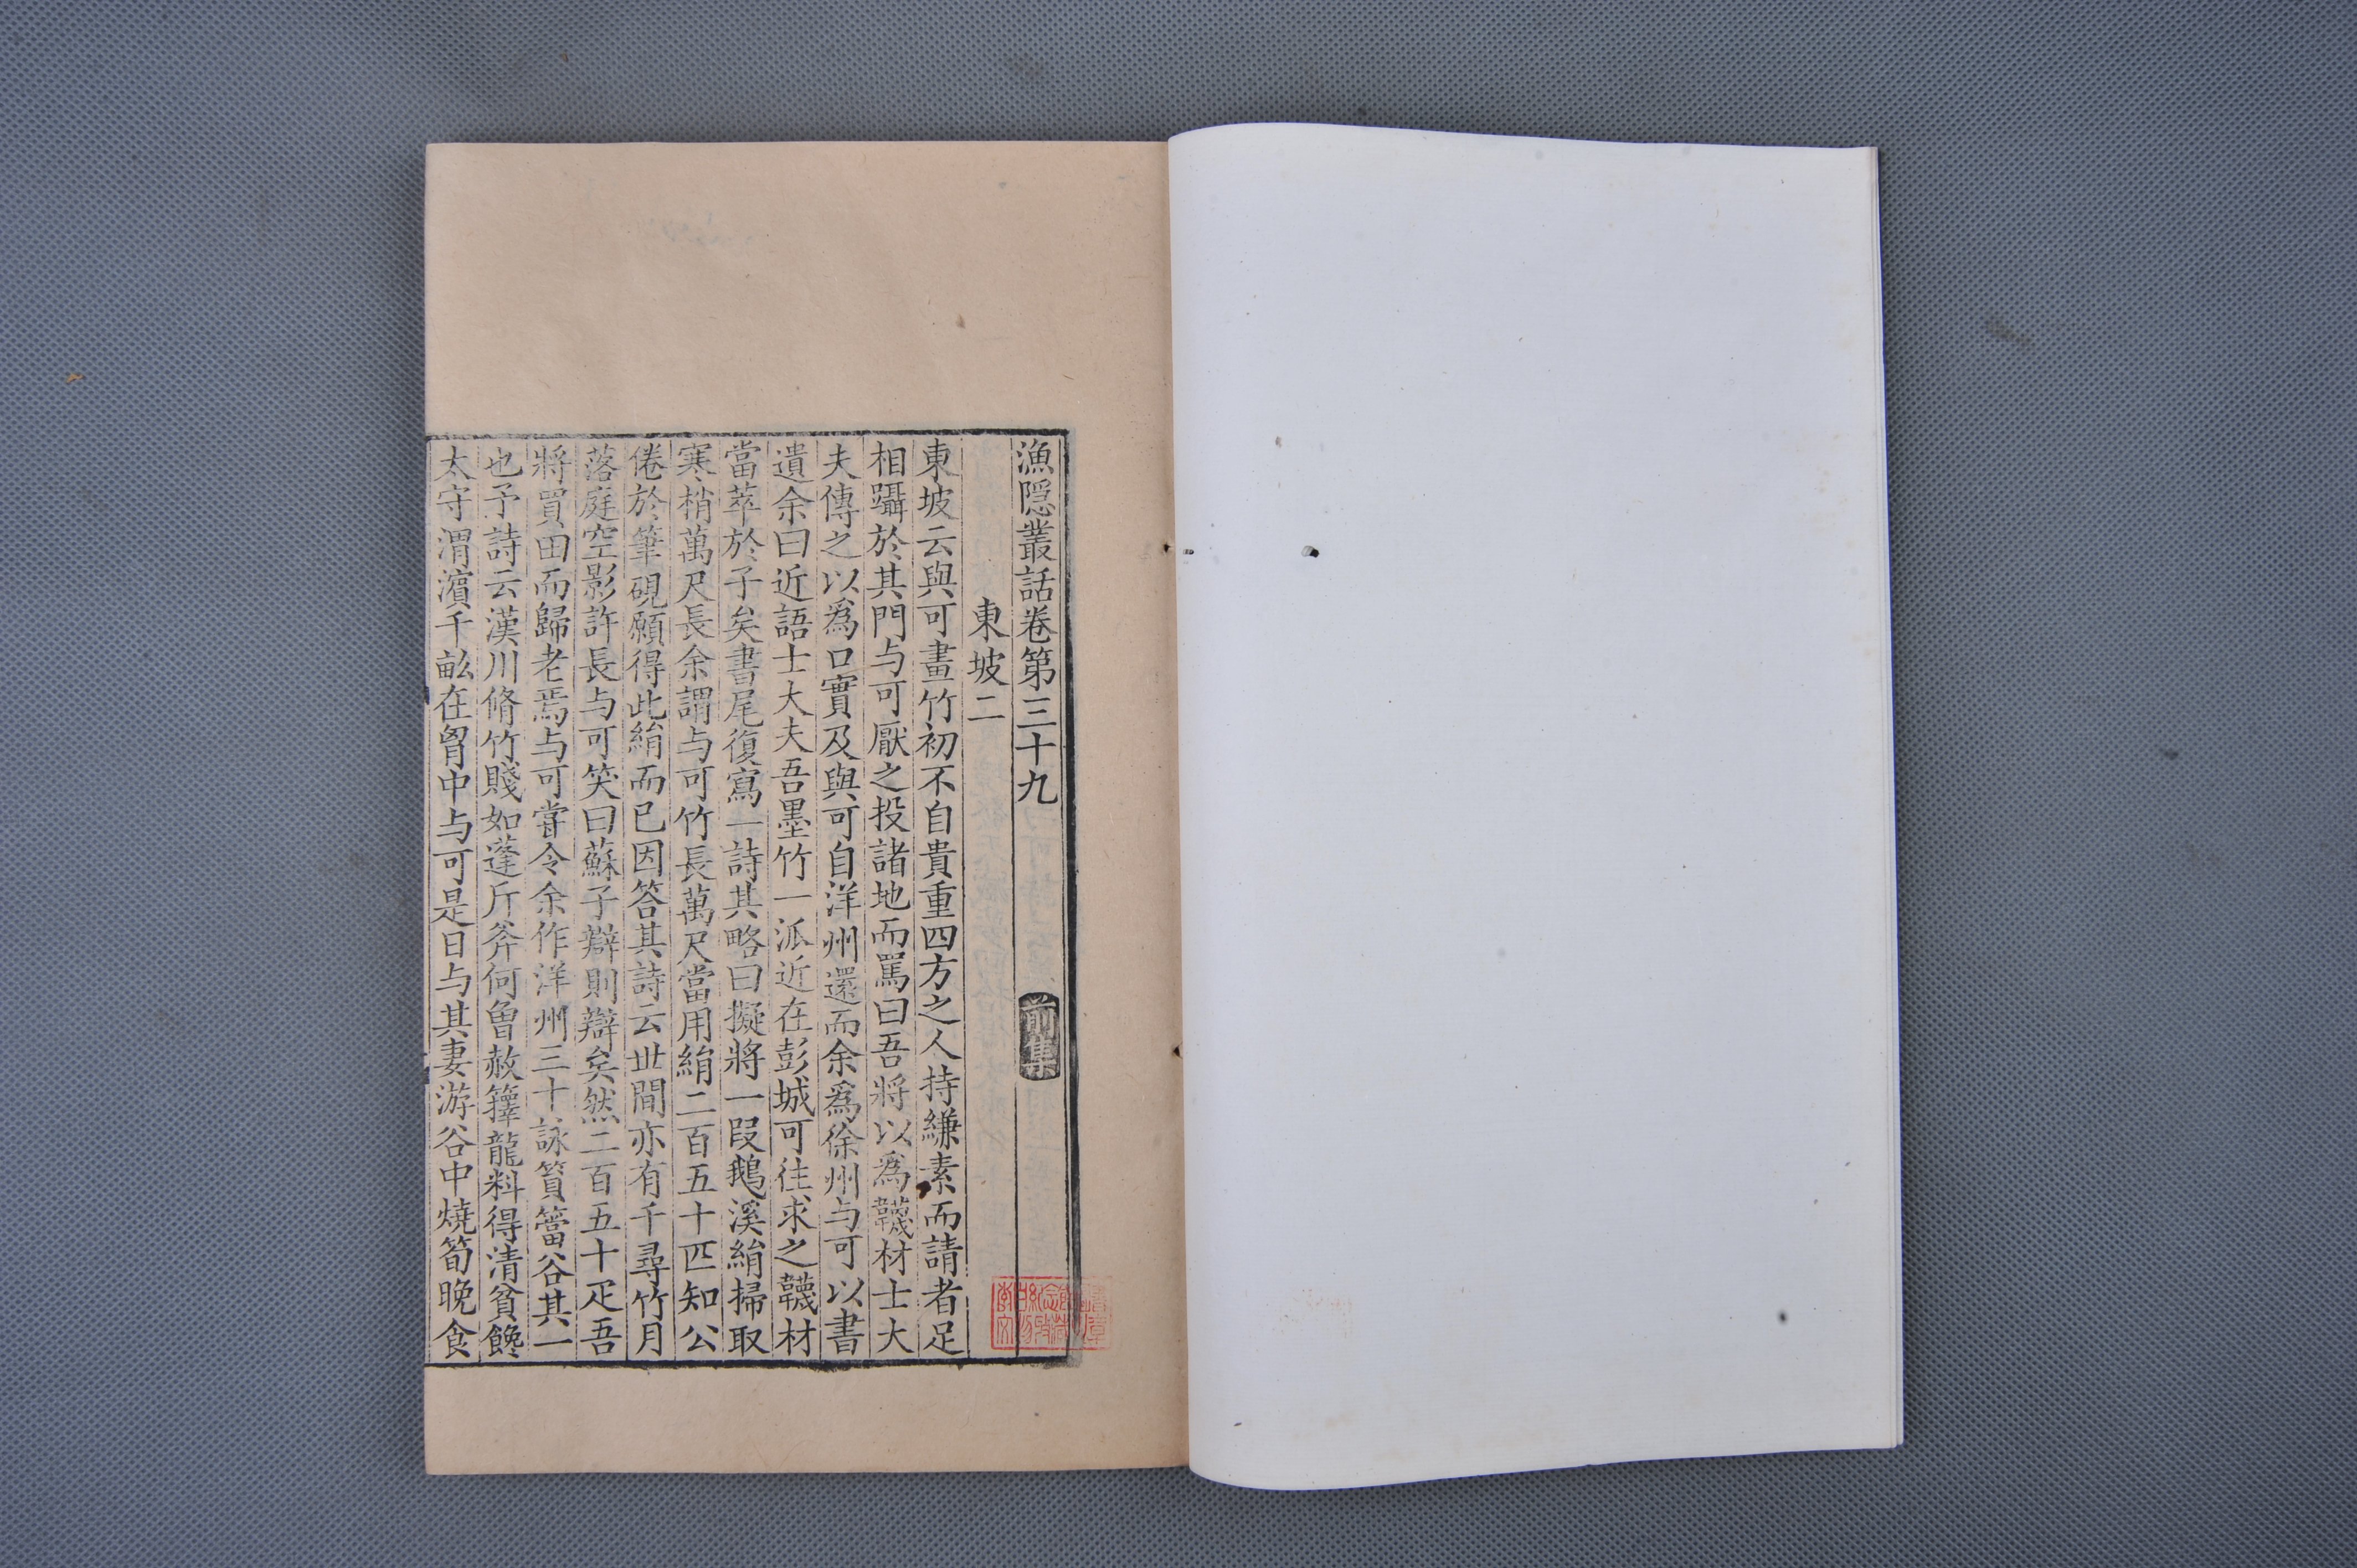 漁隱叢話卷第三十九 前集
東坡二
東坡云與可畫竹初不自貴重四方之人持縑素而請者足
相躡於其門与可厭之投諸地而罵曰吾將以爲韈材士大
夫傳之以爲口實及與可自洋州還而余爲徐州与可以書
遺余曰近語士大夫吾墨竹一派近在彭城可往求之韈材
當萃於子矣書尾復寫一詩其略曰擬將一段鵝溪絹掃取
寒梢萬尺長余謂与可竹長萬尺當用絹二百五十匹知公
倦於筆硯願得此絹而已因答其詩云世間亦有千尋竹月
落庭空影許長与可笑曰蘇子辯則辯矣然二百五十疋吾
將買田而歸老焉与可甞令余作洋州三十詠篔簹谷其一
也予詩云漢川脩竹賤如蓬斤斧何曾赦籜龍料得清貧饞
太守渭濵千畝在胷中与可是日与其妻游谷中燒筍晚食